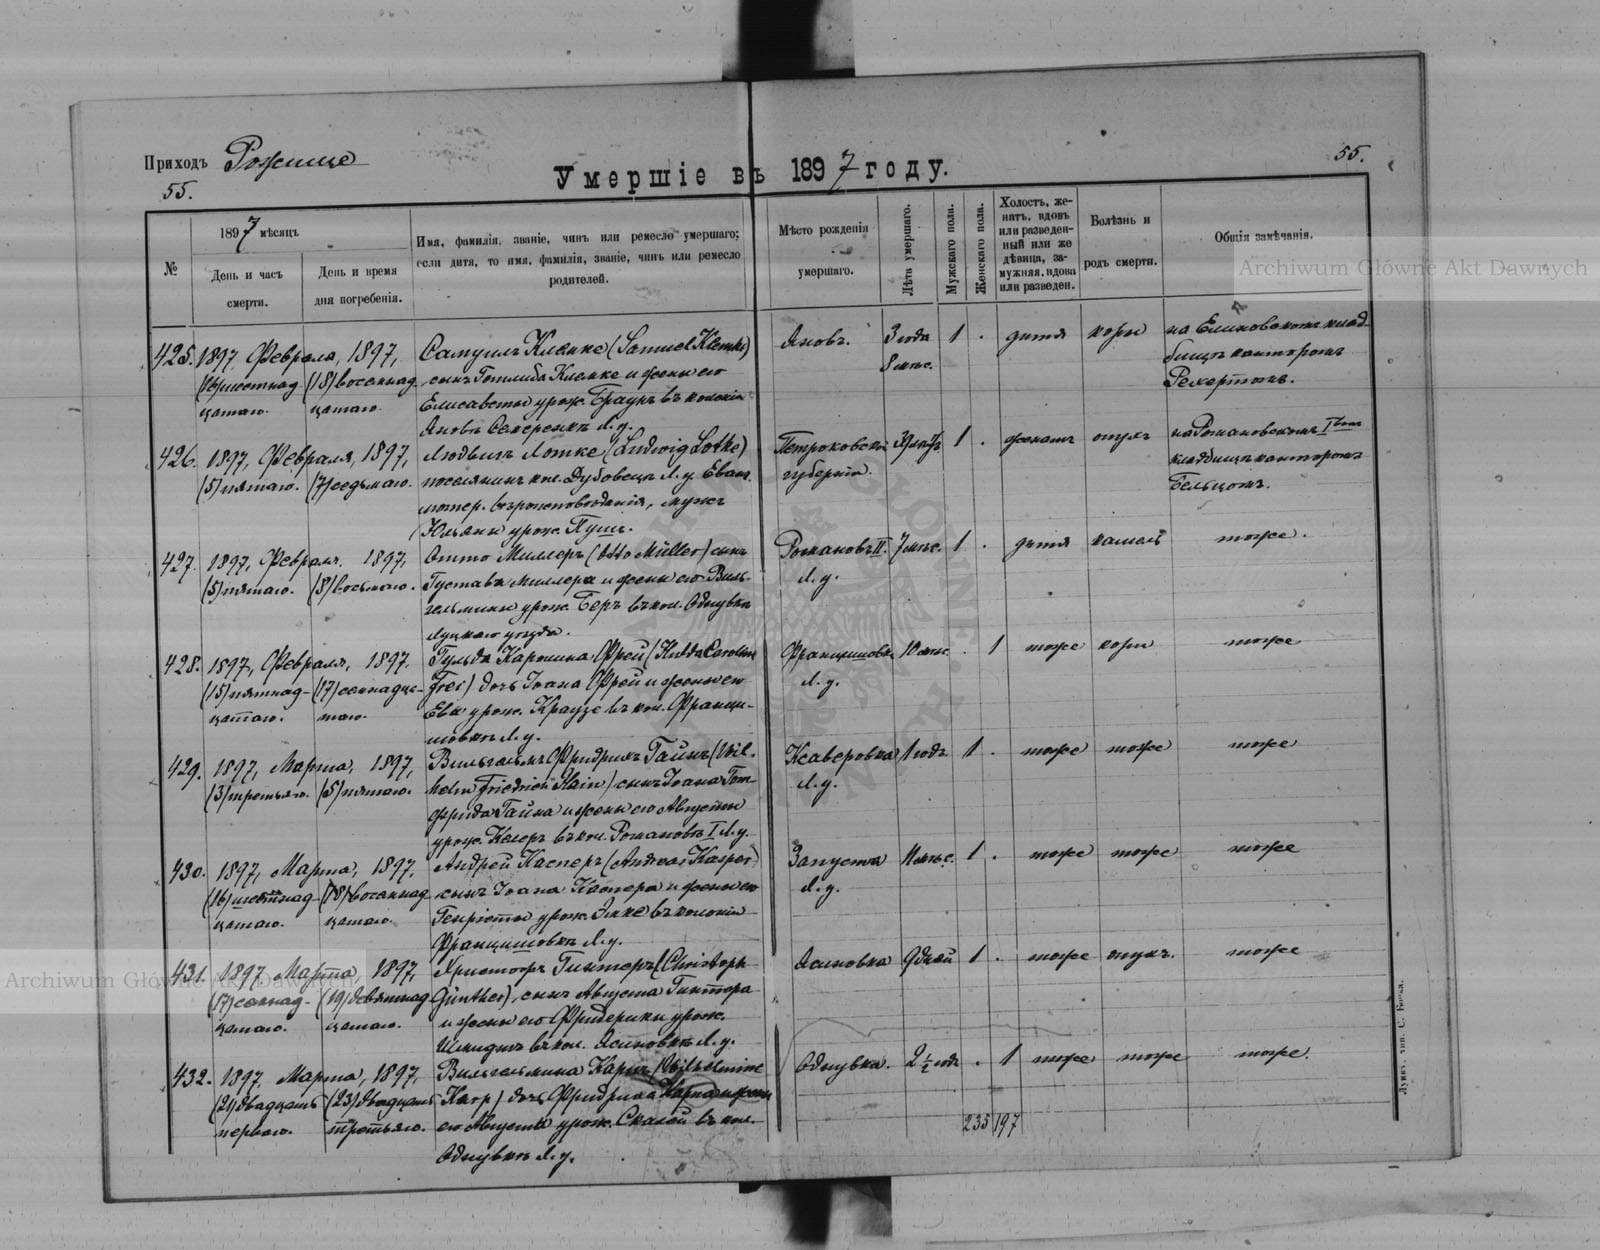 Приходъ Рожище
55.
Умершіе въ 1897 году.
55.
№
1897 мѣсяцъ
День и часъ смерти.
День и время дня погребенія.
Имя, фамилія, званіе, чинъ или ремесло умершаго;
если дитя, то имя, фамилія, званіе, чинъ или ремесло
родителей.
Мѣсто рожденія
умершаго.
Лѣта умершаго.
Мужскаго пола.
Женскаго пола.
Холостъ, же-
натъ, вдовъ
или разведен-
ный или же
дѣвица, за-
мужняя, вдова
или разведен.
Болѣзнь и
родъ смерти.
Общія замѣчанія.
425. 1897, Февраля, 1897, Самуилъ Клемке (Samuel Klemke) Яновъ. 3 года 1 . дитя кори на
(16) шестнад- (18) восемнад- сынъ Готлиба Клемке и жены его 8 мѣс.
цатаго. цатаго. Елисаветы урож. Браунъ въ колоніи
Яновъ Л. у.
426. 1897, Февраля, 1897, Людвигъ Лотке (Ludwig Lotke) Петроковской 1 . женатъ на Романовскомъ I
(5) пятаго. (7) седьмаго. поселянинъ кол. Дубовецъ Л. у. Еванг. губерніи. кладбищѣ канторомъ
лютер. вѣроисповѣданія, мужъ
Юліаны урож. Пушъ.
427. 1897, Февраля, 1897, Отто Миллеръ (Otto Müller) сынъ Романовъ II. 7 мѣс. 1 . дитя кашель тоже.
(5) пятаго. (8) восьмаго. Густава Миллера и жены его Виль- Л. у.
гельмины урож. Беръ въ кол.
Луцкаго уѣзда.
428. 1897, Февраля, 1897, Гульда Каролина Фрей (Hulda Caroline Францишовка 10 мѣс. . 1 тоже кори тоже
(15) пятнад- (17) семнадца- Frei) дочь Іоана Фрей и жены его Л. у.
цатаго. таго. Евы урож. Краузе въ кол. Франци-
шовкѣ Л. у.
429. 1897, Марта, 1897, Вильгельмъ Фридрихъ Гайнъ (Wil- Ксаверовка 1 годъ 1 . тоже тоже тоже
(3) третьяго. (5) пятаго. helm Friedrich Hain) сынъ Іоана Гот- Л. у.
фрида Гайна и жены его Августы
урож. въ кол. Романовъ I Л. у.
430. 1897, Марта, 1897, Андрей Касперъ (Andreas Kasper) Запуста 11 мѣс. 1 . тоже тоже тоже
(16) шестнад- (18) восемнад- сынъ Іоана Каспера и жены его Л. у.
цатаго. цатаго. Генріеты урож. въ колоніи
Францишовкѣ Л. у.
431. 1897 Марта, 1897, Христофъ Гинтеръ (Christoph Ясиновка 9 дней 1 . тоже тоже
(17) семнад- (19) девятнад- Günther), сынъ Августа Гинтера
цатаго. цатаго. и жены его Фридерики урож.
Шмидтъ въ кол. Ясиновкѣ Л. у.
432. 1897, Марта, 1897, Вильгельмина Карпъ (Wilhelmine 2 ½ года . 1 тоже тоже тоже.
(21) двадцать (23) двадцать Karp) дочь Фридриха Карпа и жены
перваго. третьяго. его Августы урож. въ кол.
Л. у.
235 197
Archiwum Główne Akt Dawnych
Archiwum Główne Akt Dawnych